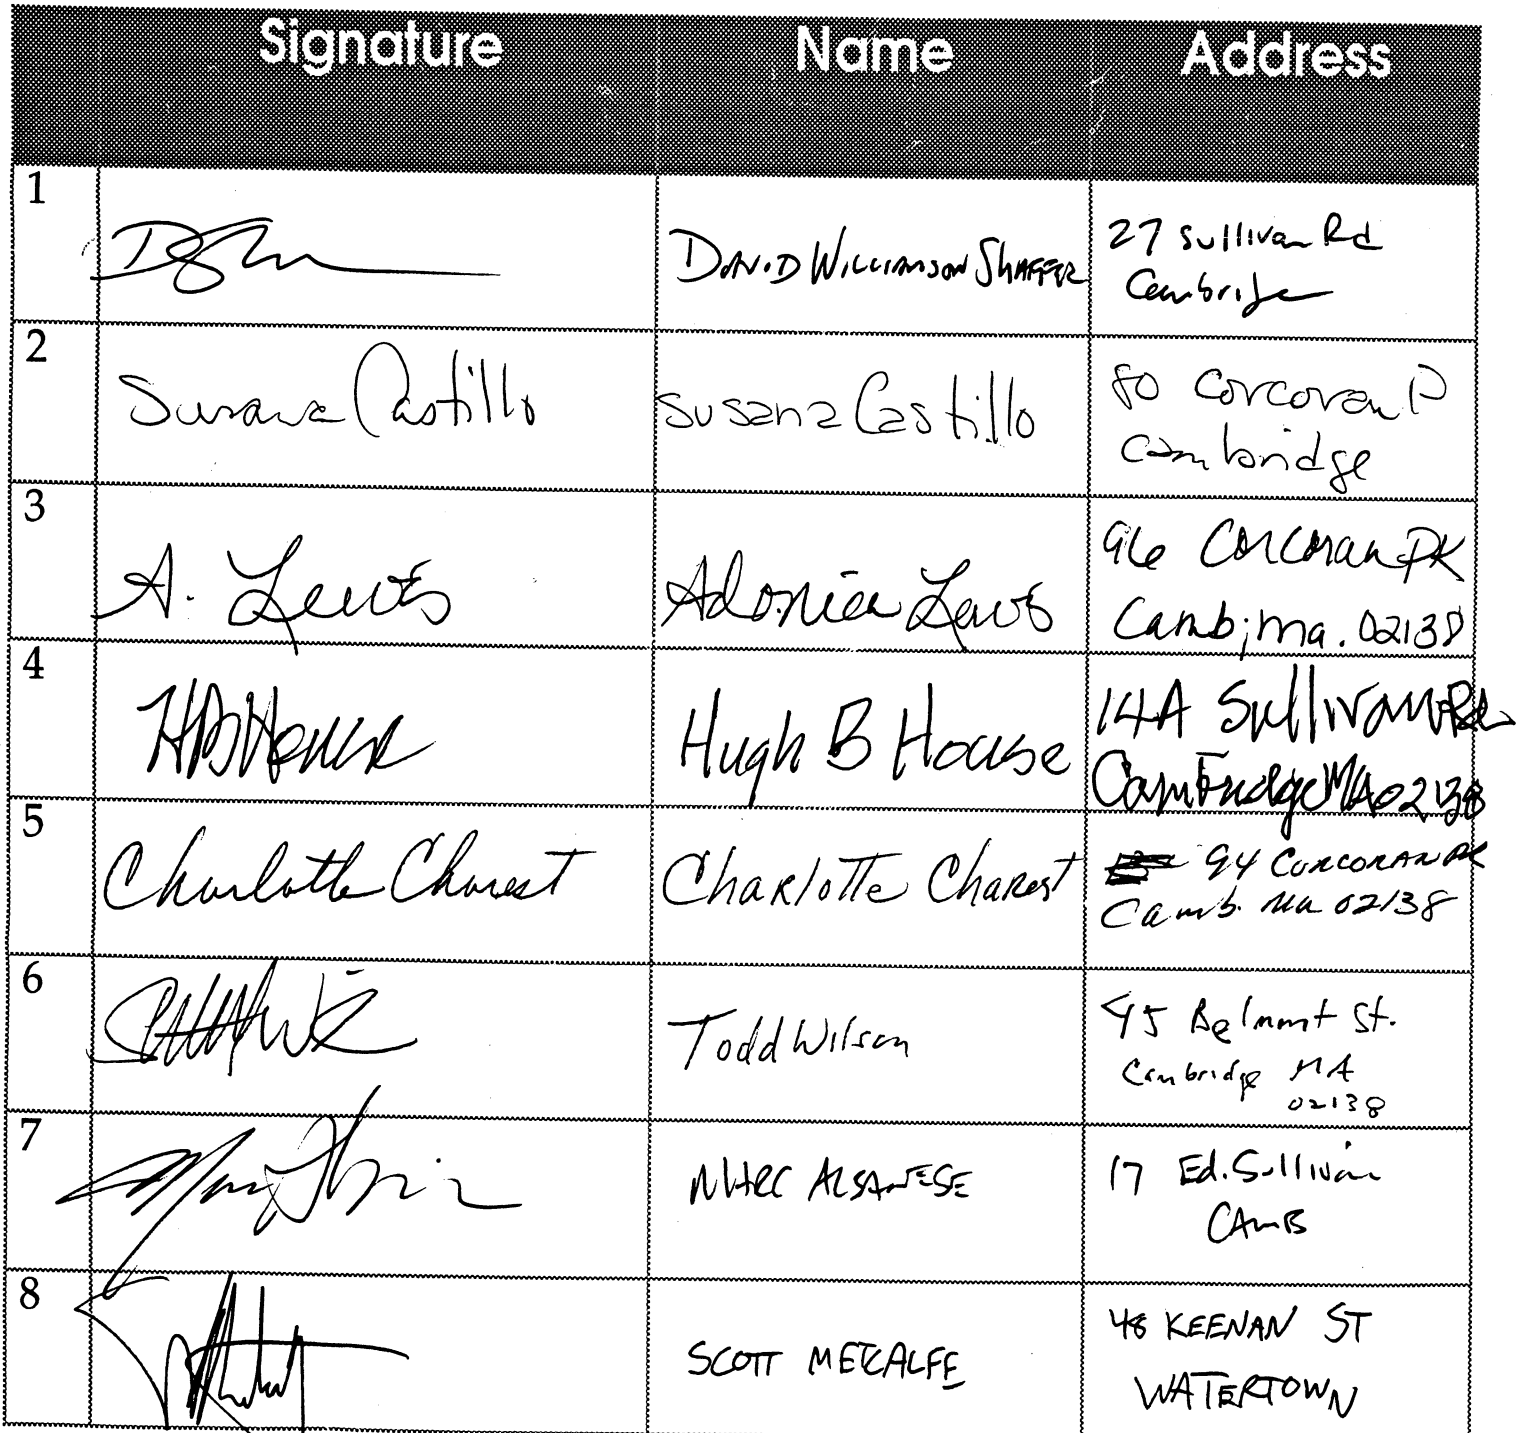 Signature Name Address
1
David Williamson Shaffer
27 Sullivan Rd
Cambridge
2
Susana Castillo
Susana Castillo
80 Corcoran P
Cambridge
3
A. Lewis
Adonica Lewis
96 Corcoran PK
Camb; Ma. 02138
4
HB House
Hugh B House
14A Sullivan Rd
Cambridge MA 02138
5
Charlotte Charest
Charlotte Charest
94 Corcoran PK
Camb. Ma 02138
6
Todd Wilson
45 Belmont St.
Cambridge MA
02138
7
MARC ALBANESE
17 Ed. Sullivan
CAMB
8
SCOTT METCALFE
48 KEENAN ST
WATERTOWN